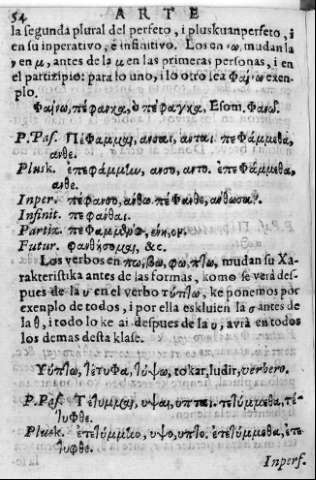 54 ARTE
la segunda plural del perfeto, i pluskuanperfeto, i
en su inperativo, è infinitivo. Los en νω, mudan la
ν, en μ, antes de la μ en las primeras personas, i en
el partizipio: para lo uno, i lo otro sea Φαίνω exen-
plo.
Φαίνω, πέφανκα, ὁ πέφαγκα, Esom. Φανῶ.
P. Pas. Πέφαμμαι, ανσαι, ανται. πεφάμμεθα,
ανθε.
Plusk. ἐπεφάμμην, ανσο, αντο. ἐπεφάμμεθα,
ανθε.
Inper. πέφανσο, άνθω. πέφανθε, άνθωσαν.
Infinit. πεφάνθαι.
Partiz. πεφαμμένος, ένη, ον.
Futur. φανθήσομαι, &c.
Los verbos en πω, βω, φω, πτω, mudan su Xa-
rakteristika antes de las formas, komo se verà des-
pues de la υ en el verbo τύπτω, ke ponemos por
exenplo de todos, i por ella eskluien la σ antes de
la θ, i todo lo ke ai despues de la υ, avrà en todos
los demas desta klase.
Τύπτω, τέτυφα, τύψω, tokar, ludir, verbero.
P. Pas. Τέτυμμαι, υψαι, υπται. τετύμμεθα, τέ-
τυφθε.
Plusk. ἐτετύμμην, υψο, υπτο. ἐτετύμμεθα, ἐτέ-
τυφθε.
Inperf.